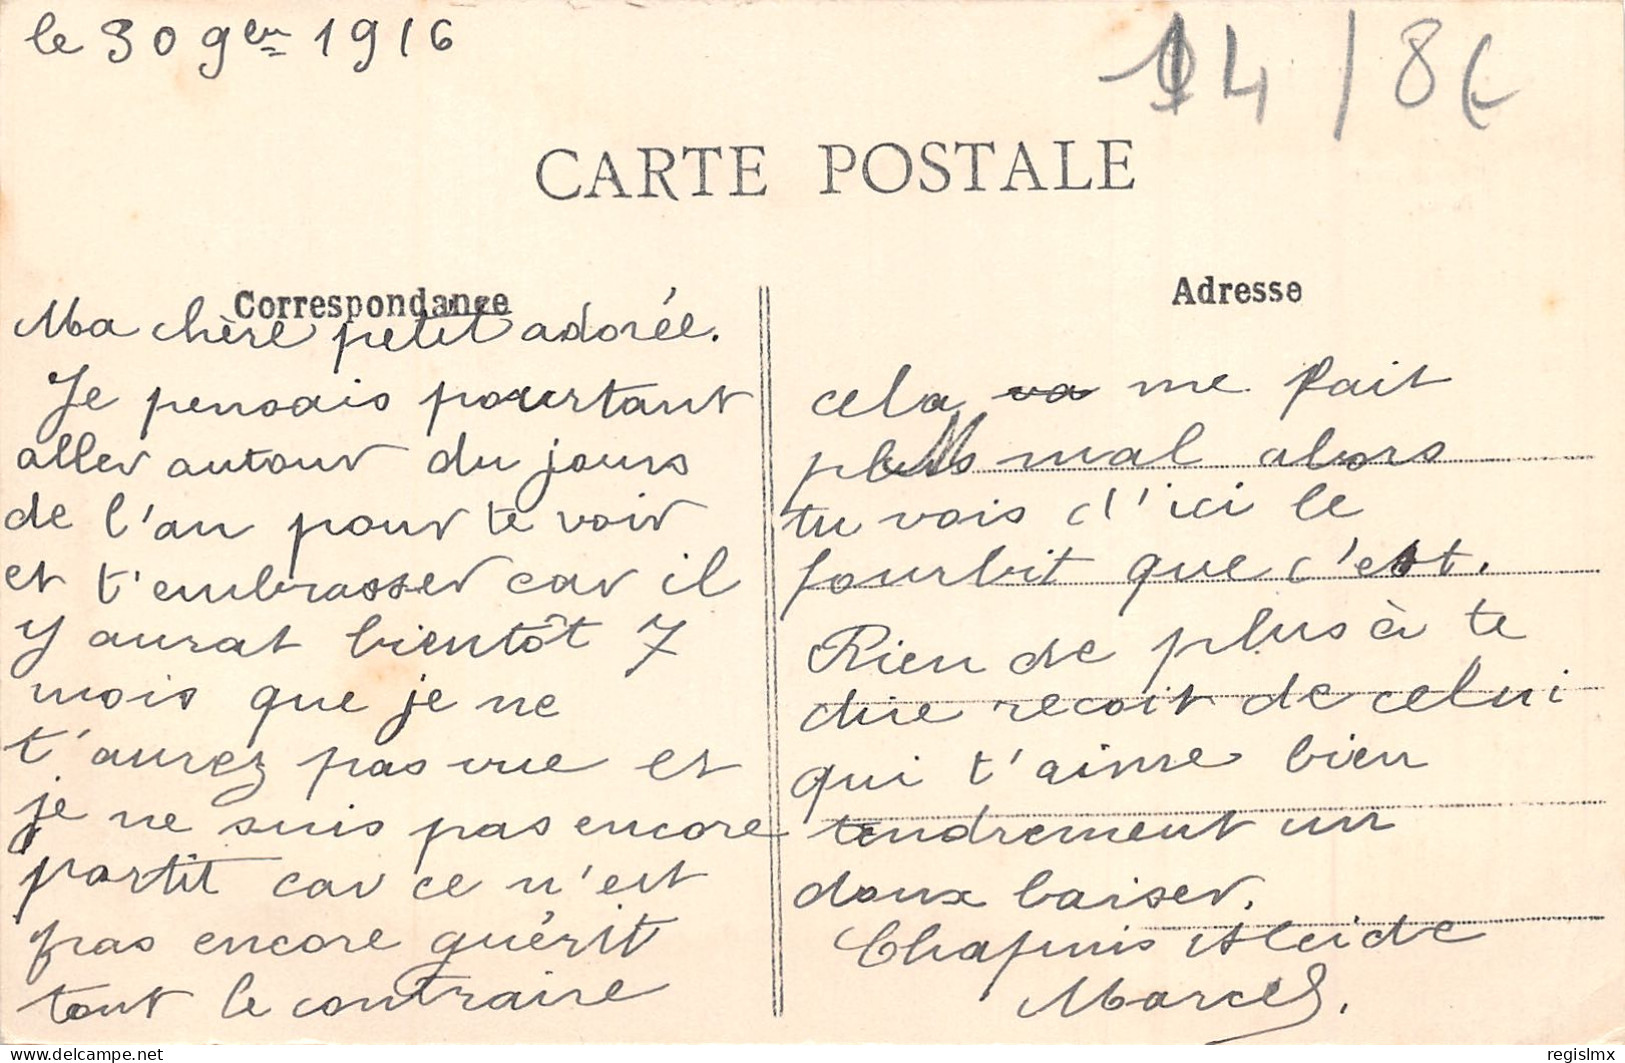 le 30 9bre 1916
14/8€
CARTE POSTALE
Correspondance
Adresse
Ma chère petit adorée.
Je pensais pourtant
aller autour du jours
de l'an pour te voir
et t'embrasser car il
y aurat bientôt 7
mois que je ne
t'aurez pas vue et
je ne suis pas encore
partit car ce n'est
pas encore guérit
tout le contraire
cela va me fait
plus mal alors
tu vois d'ici le
fourbit que c'est.
Rien de plus à te
dire recoit de celui
qui t'aime bien
tendrement un
doux baiser.
Chapuis Alcide
Marcel.
delcampe.net
regislmx